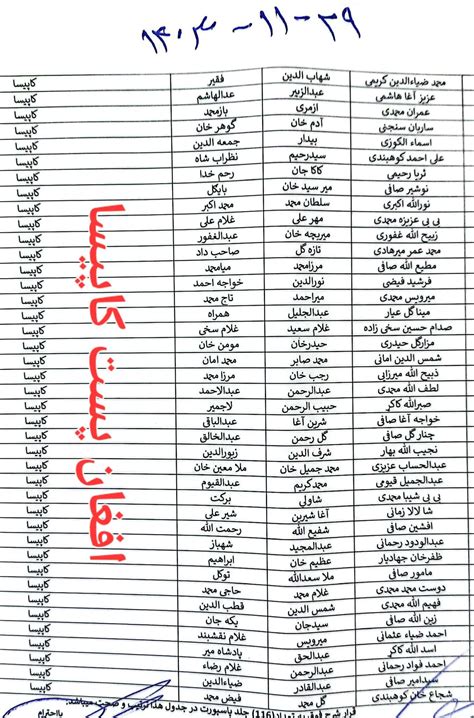 ۱۴۰۳-۱۱-۲۹
محمد ضیاءالدین کریمی شهاب الدین فقیر کاپیسا
عزیز آغا هاشمی عبدالزبیر عدالهاشم کاپیسا
عمران محمدی ازمری بازمحمد کاپیسا
ساربان سنجنی آدم خان گوهر خان کاپیسا
اسماء الکوزی بیدار جمعه الدین کاپیسا
علی احمد کوهبندی سیدرحیم نظراب شاه کاپیسا
ثریا رحیمی کاکا جان رحم خدا کاپیسا
نوشیر صافی میر سید خان بایگل کاپیسا
نورالله اکبری سلطان محمد محمد اکبر کاپیسا
بی بی عزیزه محمدی مهر علی غلام علی کاپیسا
زبیح الله غفوری میربچه خان عبدالغفور کاپیسا
محمد عمر میرهادی تازه گل صاحب داد کاپیسا
مطیع الله صافی مرزامحمد میامحمد کاپیسا
فرشید فیضی نورالدین خواجه احمد کاپیسا
میرویس محمدی میراحمد تاج محمد کاپیسا
مینا گل عیار عبدالجلیل همراه کاپیسا
صدام حسین سخی زاده غلام سعید غلام سخی کاپیسا
مزارگل حیدری حیدرخان مومن خان کاپیسا
شمس الدین امانی محمد صابر محمد امان کاپیسا
ذبیح الله میرزایی رجب خان مرزا محمد کاپیسا
لطف الله محمدی عبدالرحمن عبدالاحمد کاپیسا
صبرالله کاکړ حبیب الرحمن لاجمیر کاپیسا
خواجه آغا صافی شرین آغا عبدالباقی کاپیسا
چنار گل صافی گل رحمن عبدالخالق کاپیسا
نجیب الله بهار شرف الدین زیورالدین کاپیسا
عبدالحساب عزیزی محمد جمیل خان ملا معین خان کاپیسا
عبدالجمیل قیومی محمدکریم عبدالقیوم کاپیسا
بی بی شیبا محمدی شاولی برکت کاپیسا
شا لالا زمانی آغا شیرین شیر علی کاپیسا
افشین صافی شفیع الله رحمت الله کاپیسا
عبدالودود رحمانی عبدالمجید شهباز کاپیسا
ظفرخان جهادیار عظیم خان ابراهیم کاپیسا
مامور صافی ملا سعدالله توکل کاپیسا
دوست محمد محمدی گل محمد حاجی محمد کاپیسا
فهیم الله محمدی شمس الدین قطب الدین کاپیسا
زین الله صافی سیدجان یکه جان کاپیسا
احمد ضیاء عثمانی میرویس غلام نقشبند کاپیسا
اسد الله کاکړ عبدالحق پادشاه میر کاپیسا
احمد فواد رحمانی عبدالرحمن غلام رضاء کاپیسا
سیدامیر صافی عبدالقادر ضیاءالدین کاپیسا
شجاع خان کوهبندی گل محمد فیض محمد کاپیسا
قرار شرح فوق به تعداد (116) جلد پاسپورت در جدول هذا ترتیب و صحت میباشد.
بااحترام
افغان پست کاپیسا